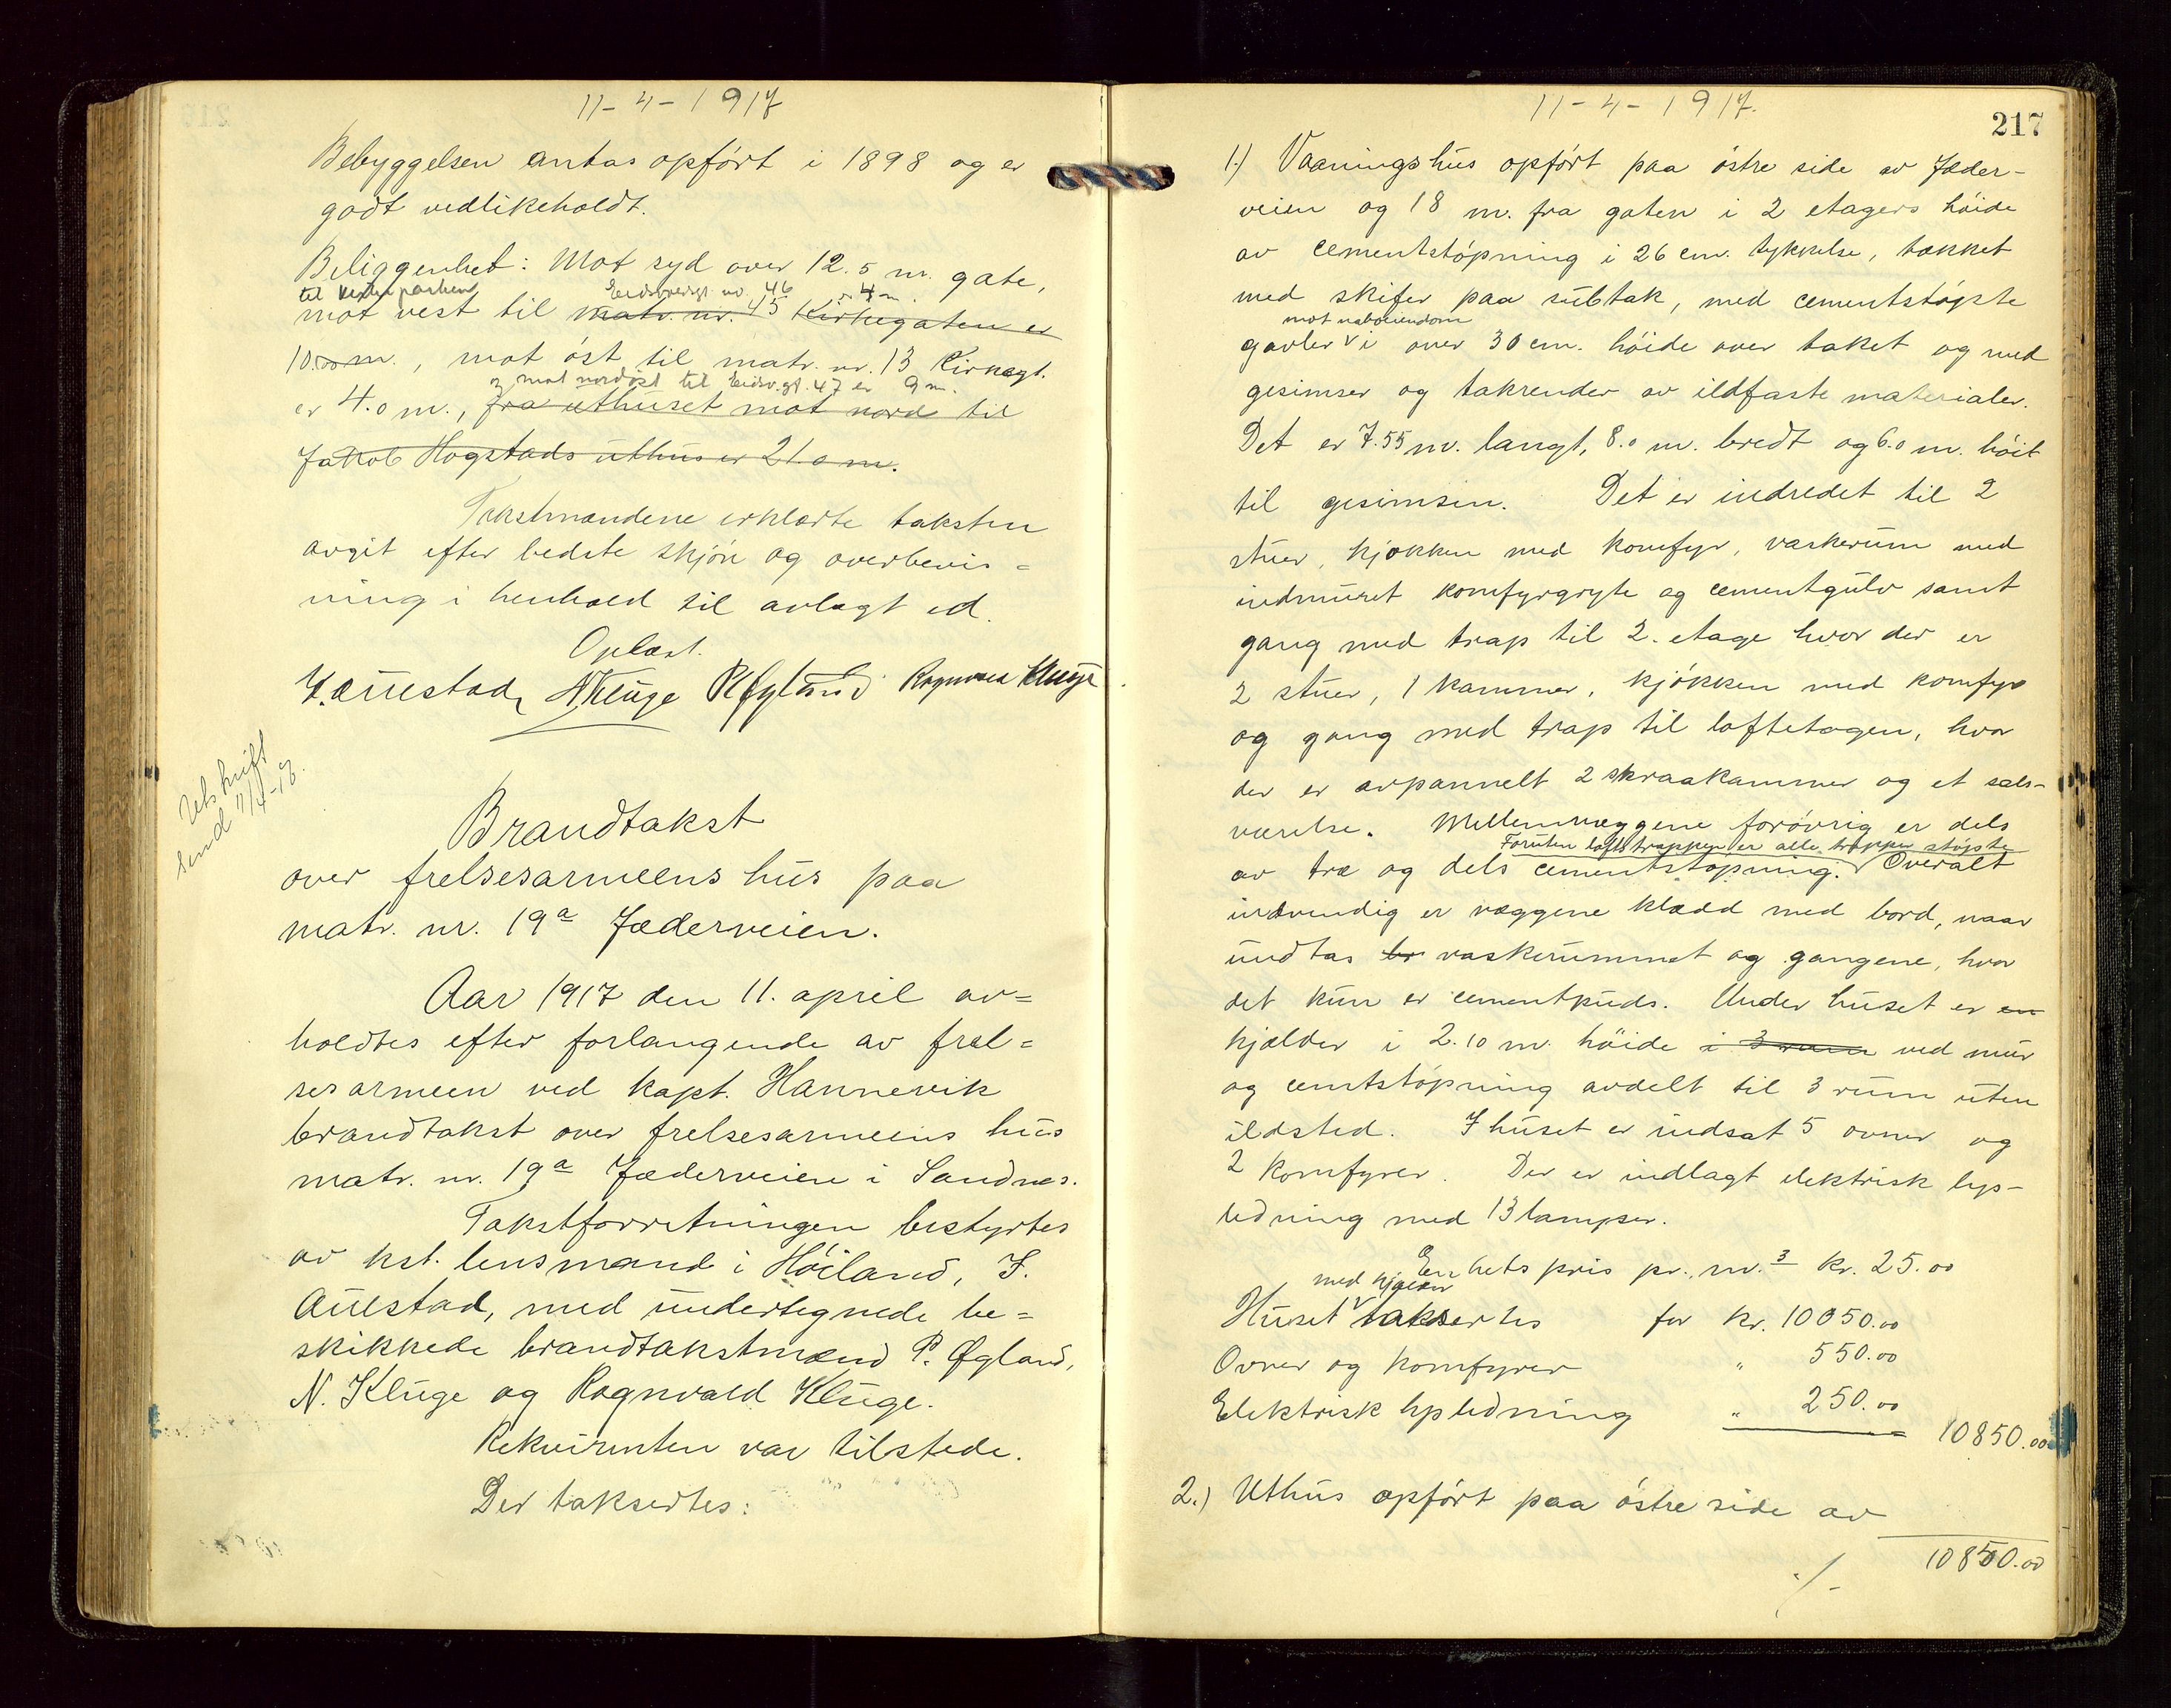 11-4-1917
Bebyggelsen antas opført i 1898 og er
godt vedlikeholdt.
Beliggenhet: Mot syd over 12.5 m. gate,
til Eidsvoldsgt nr. 46 er 4 m.
mot vest til matr. nr. 45 Kirkegaten er
10.00 m., mot öst til matr. nr. 13 Kirkegt.
og mot nordöst til Eidsv.gt. 47 er 9 m.
er 4.0 m., fra uthuset mot nord til
Jakob Hogstads uthus er 21.0 m.
Takstmændene erklærte taksten
avgit efter bedste skjøn og overbevis=
ning i henhold til avlagt ed.
Oplæst.
I. Auestad, N Kluge P Øgland Rognvald Kluge
Utskrift
send 11/4-17.
Brandtakst
over frelsesarmeens hus paa
matr. nr. 19a Jæderveien.
Aar 1917 den 11. april av=
holdtes efter forlangende av frel=
sesarmeen ved kapt. Hannevik
brandtakst over frelsesarmeens hus
matr. nr. 19a Jæderveien i Sandnes.
Takstforretningen bestyrtes
av kst. lensmand i Höiland, I.
Auestad, med undertegnede be=
skikkede brandtakstmænd P. Øgland,
N. Kluge og Rognvald Kluge.
Rekvirenten var tilstede.
Der taksertes:
11-4-1917.
217
1.) Vaaningshus opfört paa östre side av Jæder-
veien og 18 m. fra gaten i 2 etagers höide
av cementstöpning i 26 cm. tykkelse, tækket
med skifer paa subtak, med cementstöpte
mot naboeiendom
gavler v i over 30 cm. höide over taket og med
gesimser og takrender av ildfaste materialer.
Det er 7.55 m. langt, 8.0 m. bredt og 6.0 m. höit
til gesimsen. Det er indredet til 2
stuer, kjøkken med komfyr, vaskerum med
indmuret komfyrgryte og cementgulv samt
gang med trap til 2. etage hvor der er
2 stuer, 1 kammer, kjøkken med komfyr
og gang med trap til loftetagen, hvor
der er avpannelt 2 skraakammer og et sals-
værelse. Mellemvæggene forövrig er dels
Foruten loftstrappen er alle trapper stöpte
av træ og dels cementstöpning. v Overalt
indvendig er væggene klædd med bord, naar
undtas br vaskerummet og gangene, hvor
det kun er cementpuds. Under huset er en
kjælder i 2.10 m. höide i 3 rum ved mur
og cemtstöpning avdelt til 3 rum uten
ildsted. I huset er indsat 5 ovner og
2 komfyrer. Der er indlagt elektrisk lys-
ledning med 13 lamper.
Enhetspris pr. m.3 kr. 25.00
med kjælder
Huset v taksertes for kr. 10050.00
Ovner og komfyrer " 550.00
Elektrisk lysledning " 250.00
10850.00
2.) Uthus opfört paa östre side av
10850.00
./-